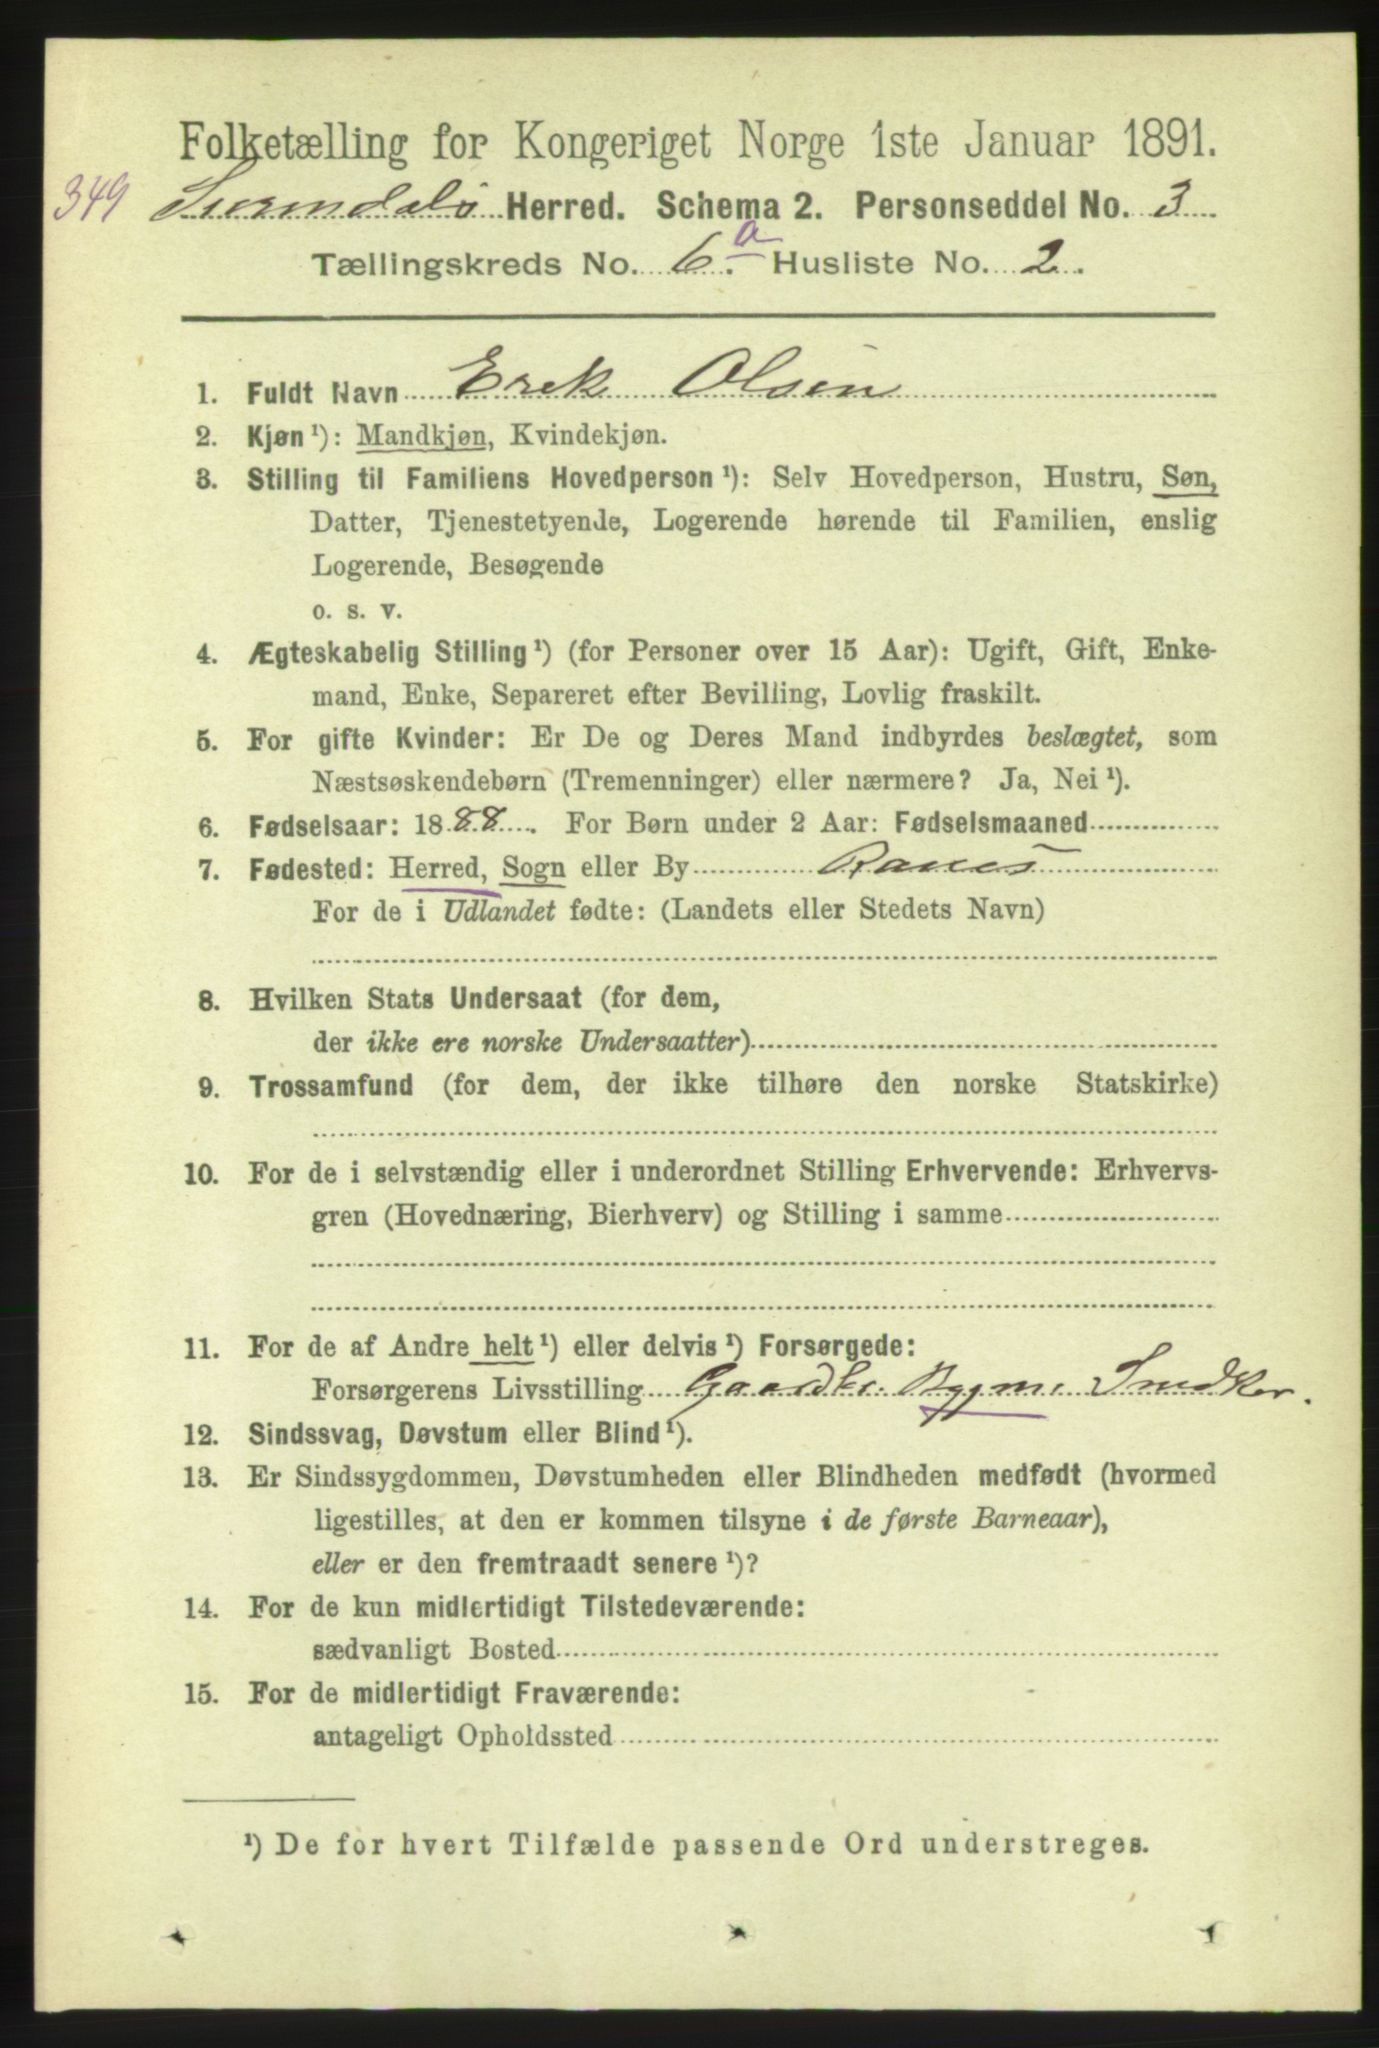 Folketælling for Kongeriget Norge 1ste Januar 1891.
349 Surendals Herred. Schema 2. Personseddel No. 3
Tællingskreds No. 6.a Husliste No. 2.
1. Fuldt Navn Erek Olsen
2. Kjøn¹): Mandkjøn, Kvindekjøn.
3. Stilling til Familiens Hovedperson¹): Selv Hovedperson, Hustru, Søn,
Datter, Tjenestetyende, Logerende hørende til Familien, enslig
Logerende, Besøgende
o. s. v.
4. Ægteskabelig Stilling¹) (for Personer over 15 Aar): Ugift, Gift, Enke-
mand, Enke, Separeret efter Bevilling, Lovlig fraskilt.
5. For gifte Kvinder: Er De og Deres Mand indbyrdes beslægtet, som
Næstsøskendebørn (Tremenninger) eller nærmere? Ja, Nei¹).
6. Fødselsaar: 1888. For Børn under 2 Aar: Fødselsmaaned
7. Fødested: Herred, Sogn eller By Ranes
For de i Udlandet fødte: (Landets eller Stedets Navn)
8. Hvilken Stats Undersaat (for dem,
der ikke ere norske Undersaatter)
9. Trossamfund (for dem, der ikke tilhøre den norske Statskirke)
10. For de i selvstændig eller i underordnet Stilling Erhvervende: Erhvervs-
gren (Hovednæring, Bierhverv) og Stilling i samme
11. For de af Andre helt¹) eller delvis¹) Forsørgede:
Forsørgerens Livsstilling Gaardbr. Bygm. Snedker.
12. Sindssvag, Døvstum eller Blind¹).
13. Er Sindssygdommen, Døvstumheden eller Blindheden medfødt (hvormed
ligestilles, at den er kommen tilsyne i de første Barneaar),
eller er den fremtraadt senere¹)?
14. For de kun midlertidigt Tilstedeværende:
sædvanligt Bosted
15. For de midlertidigt Fraværende:
antageligt Opholdssted
¹) De for hvert Tilfælde passende Ord understreges.